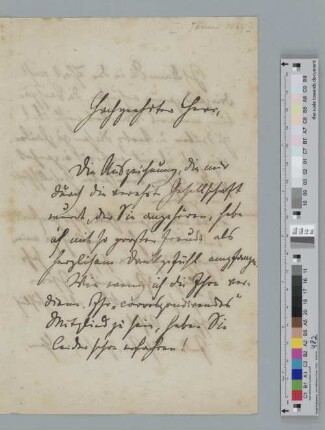 Hochgeehrter Herr,
Die Auszeichnung, die mir
durch die verehrte Gesellschaft
wurde, der Sie angehören, habe
ich mit so grosser Freude als
herzlichem Dankgefühl empfangen.
Wie wenig ich die Ehre ver-
diene, Ihr „correspondirendes"
Mitglied zu sein, haben Sie
leider schon erfahren!